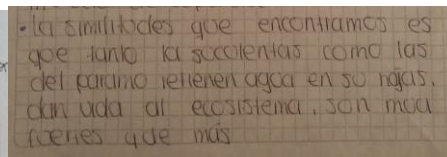 • la similitudes que encontramos es
que tanto la suculentas como las
del paramo retienen agua en su hojas.
dan vida al ecosistema, son muu
fuertes que más